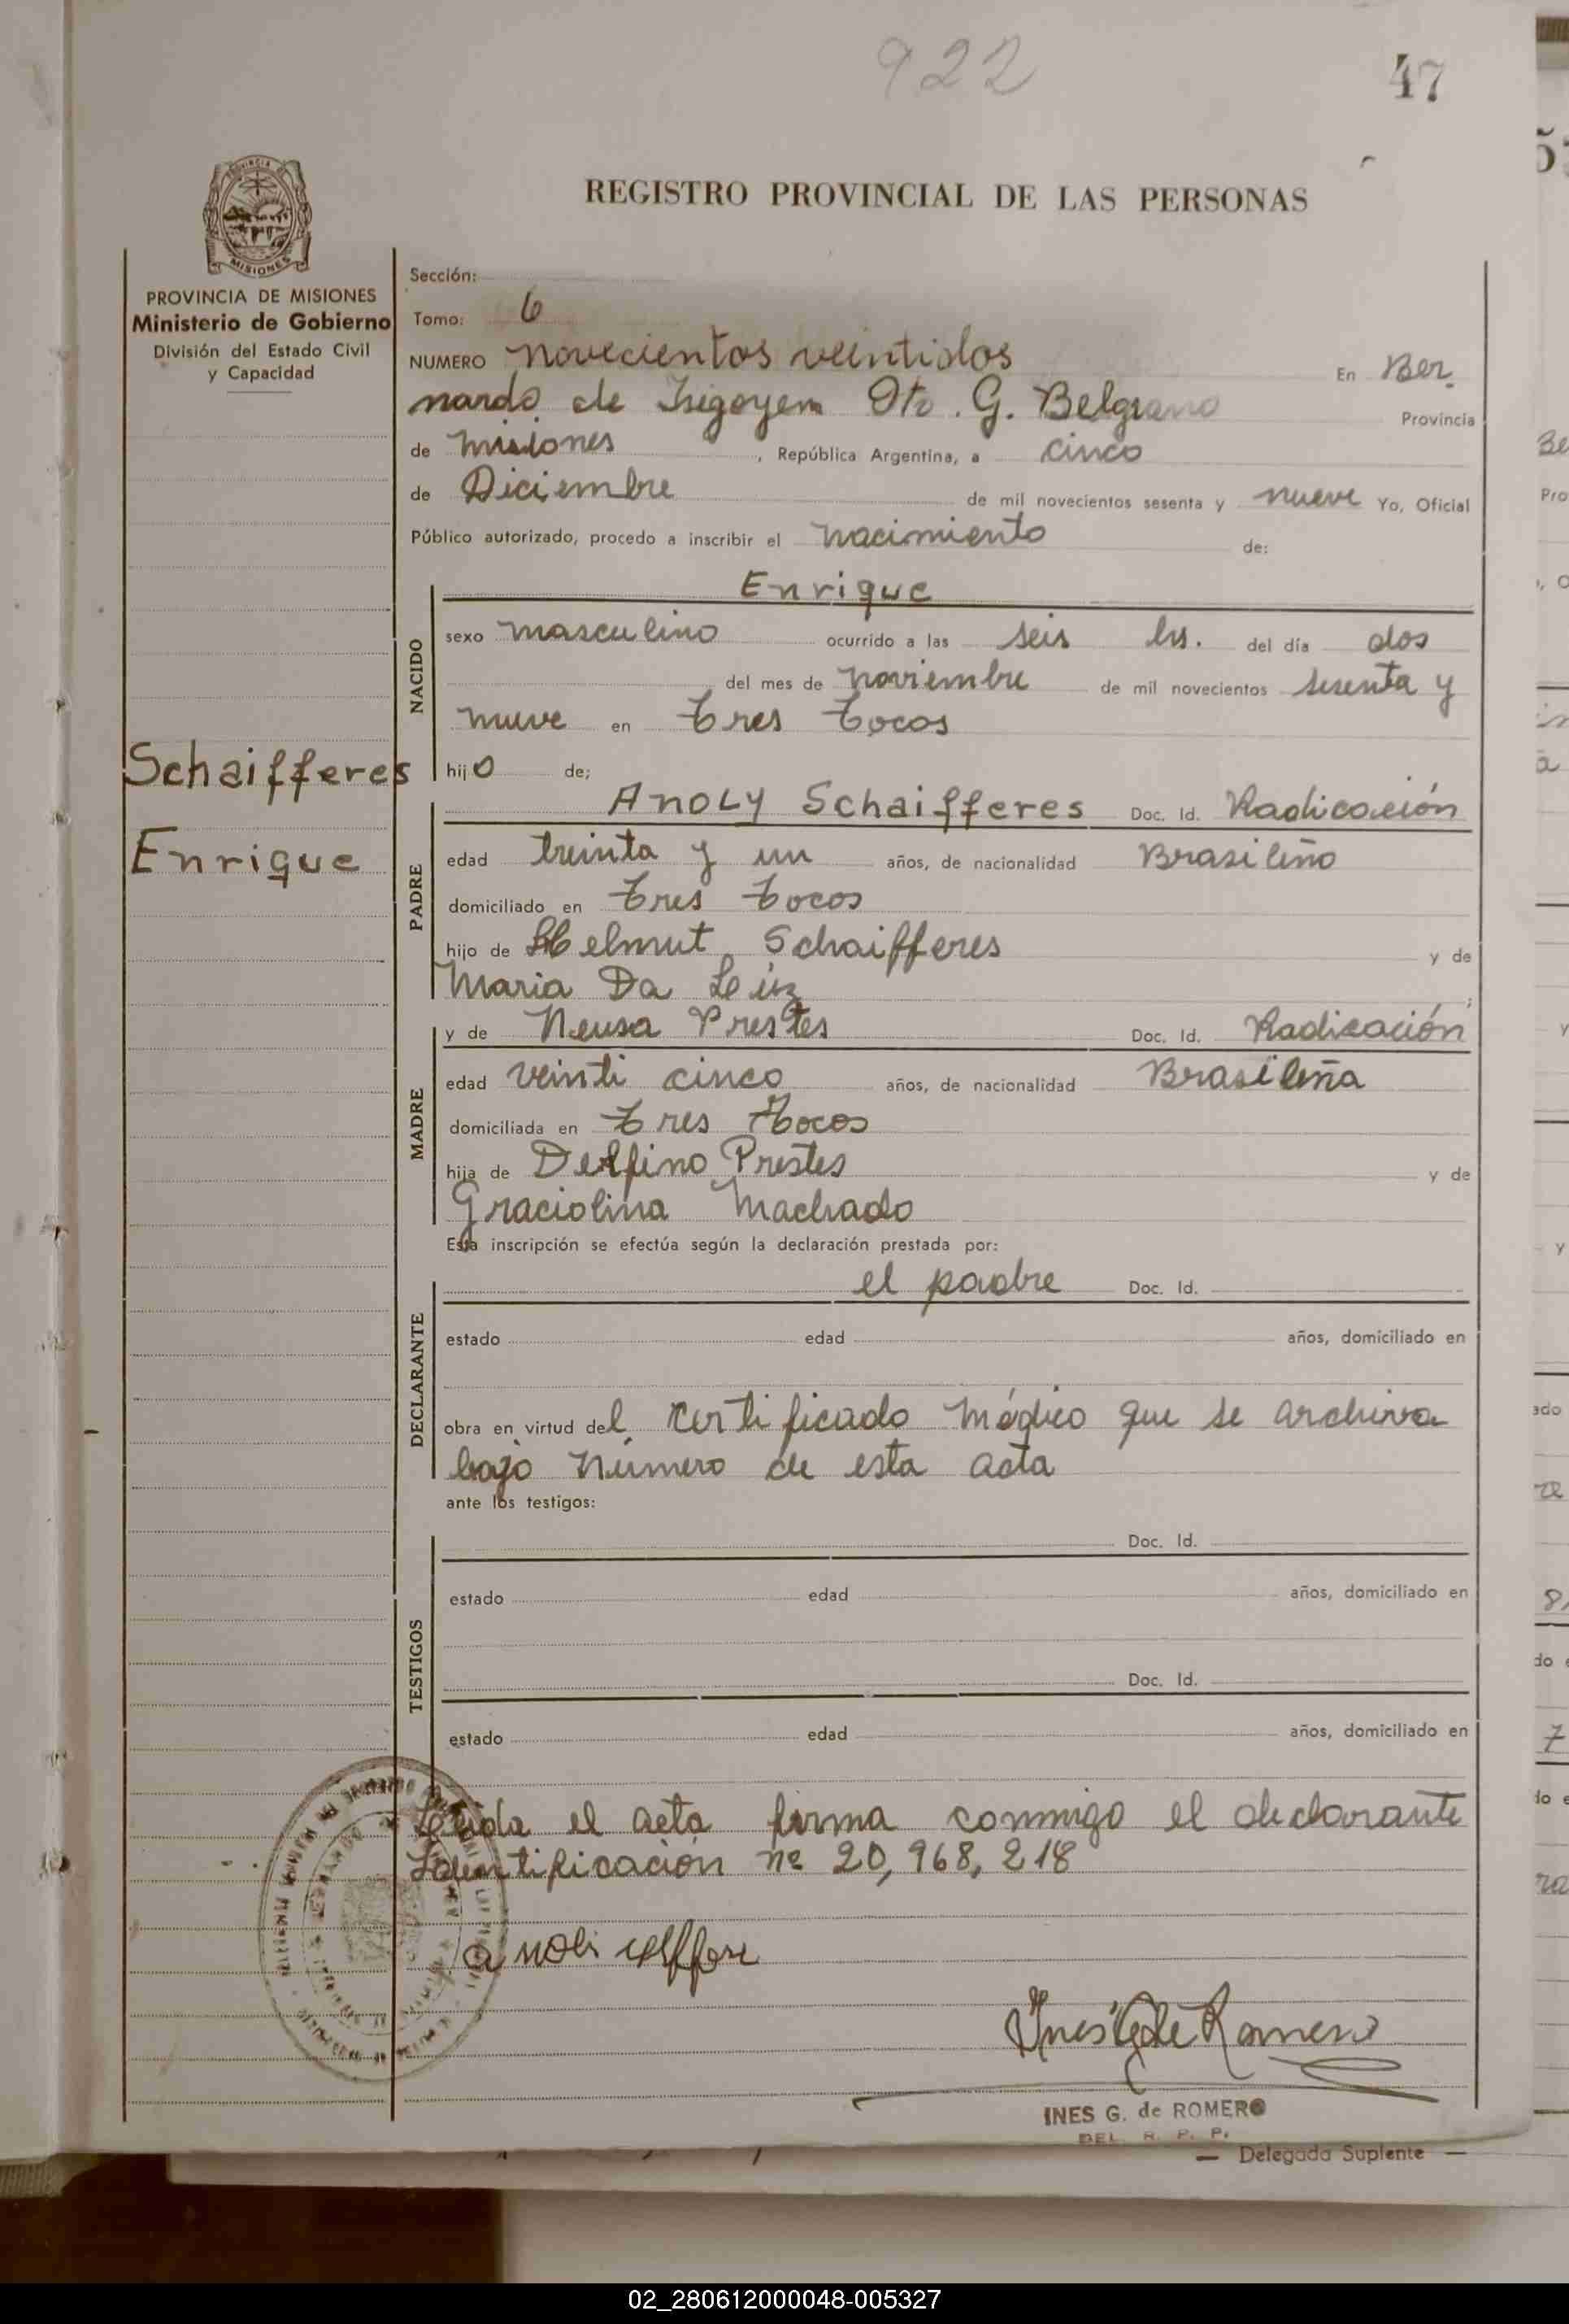 922
47
REGISTRO PROVINCIAL DE LAS PERSONAS
MISIONES
PROVINCIA DE MISIONES
Ministerio de Gobierno
División del Estado Civil
y Capacidad
Schaifferes
Enrique
Sección:
Tomo: 6
NUMERO novecientos veintidos En Ber
nardo de Irigoyem Dto. G. Belgrano Provincia
de Misiones, República Argentina, a cinco
de Diciembre de mil novecientos sesenta y nueve Yo, Oficial
Público autorizado, procedo a inscribir el nacimiento de:
Enrique
NACIDO
sexo masculino ocurrido a las seis hs. del día dos
del mes de noviembre de mil novecientos sesenta y
nueve en Tres Tocos
hijo de;
PADRE
Anoly Schaifferes Doc. Id. Radicación
edad treinta y un años, de nacionalidad Brasileño
domiciliado en Tres Tocos
hijo de Helmut Schaifferes y de
Maria Da Lúz;
MADRE
y de Neusa Prestes Doc. Id. Radicación
edad veinti cinco años, de nacionalidad Brasileña
domiciliada en Tres Tocos
hija de Delfino Prestes y de
Graciolina Machado
Esta inscripción se efectúa según la declaración prestada por:
DECLARANTE
el padre Doc. Id.
estado edad años, domiciliado en
obra en virtud del certificado médico que se archiva
bajo número de esta acta
ante los testigos:
TESTIGOS
Doc. Id.
estado edad años, domiciliado en
Doc. Id.
estado edad años, domiciliado en
Leída el acta firma conmigo el declarante
Identificación nº 20,968,218
Ines G de Romero
INES G. de ROMERO
DEL. R. P. P.
— Delegada Suplente —
02_280612000048-005327